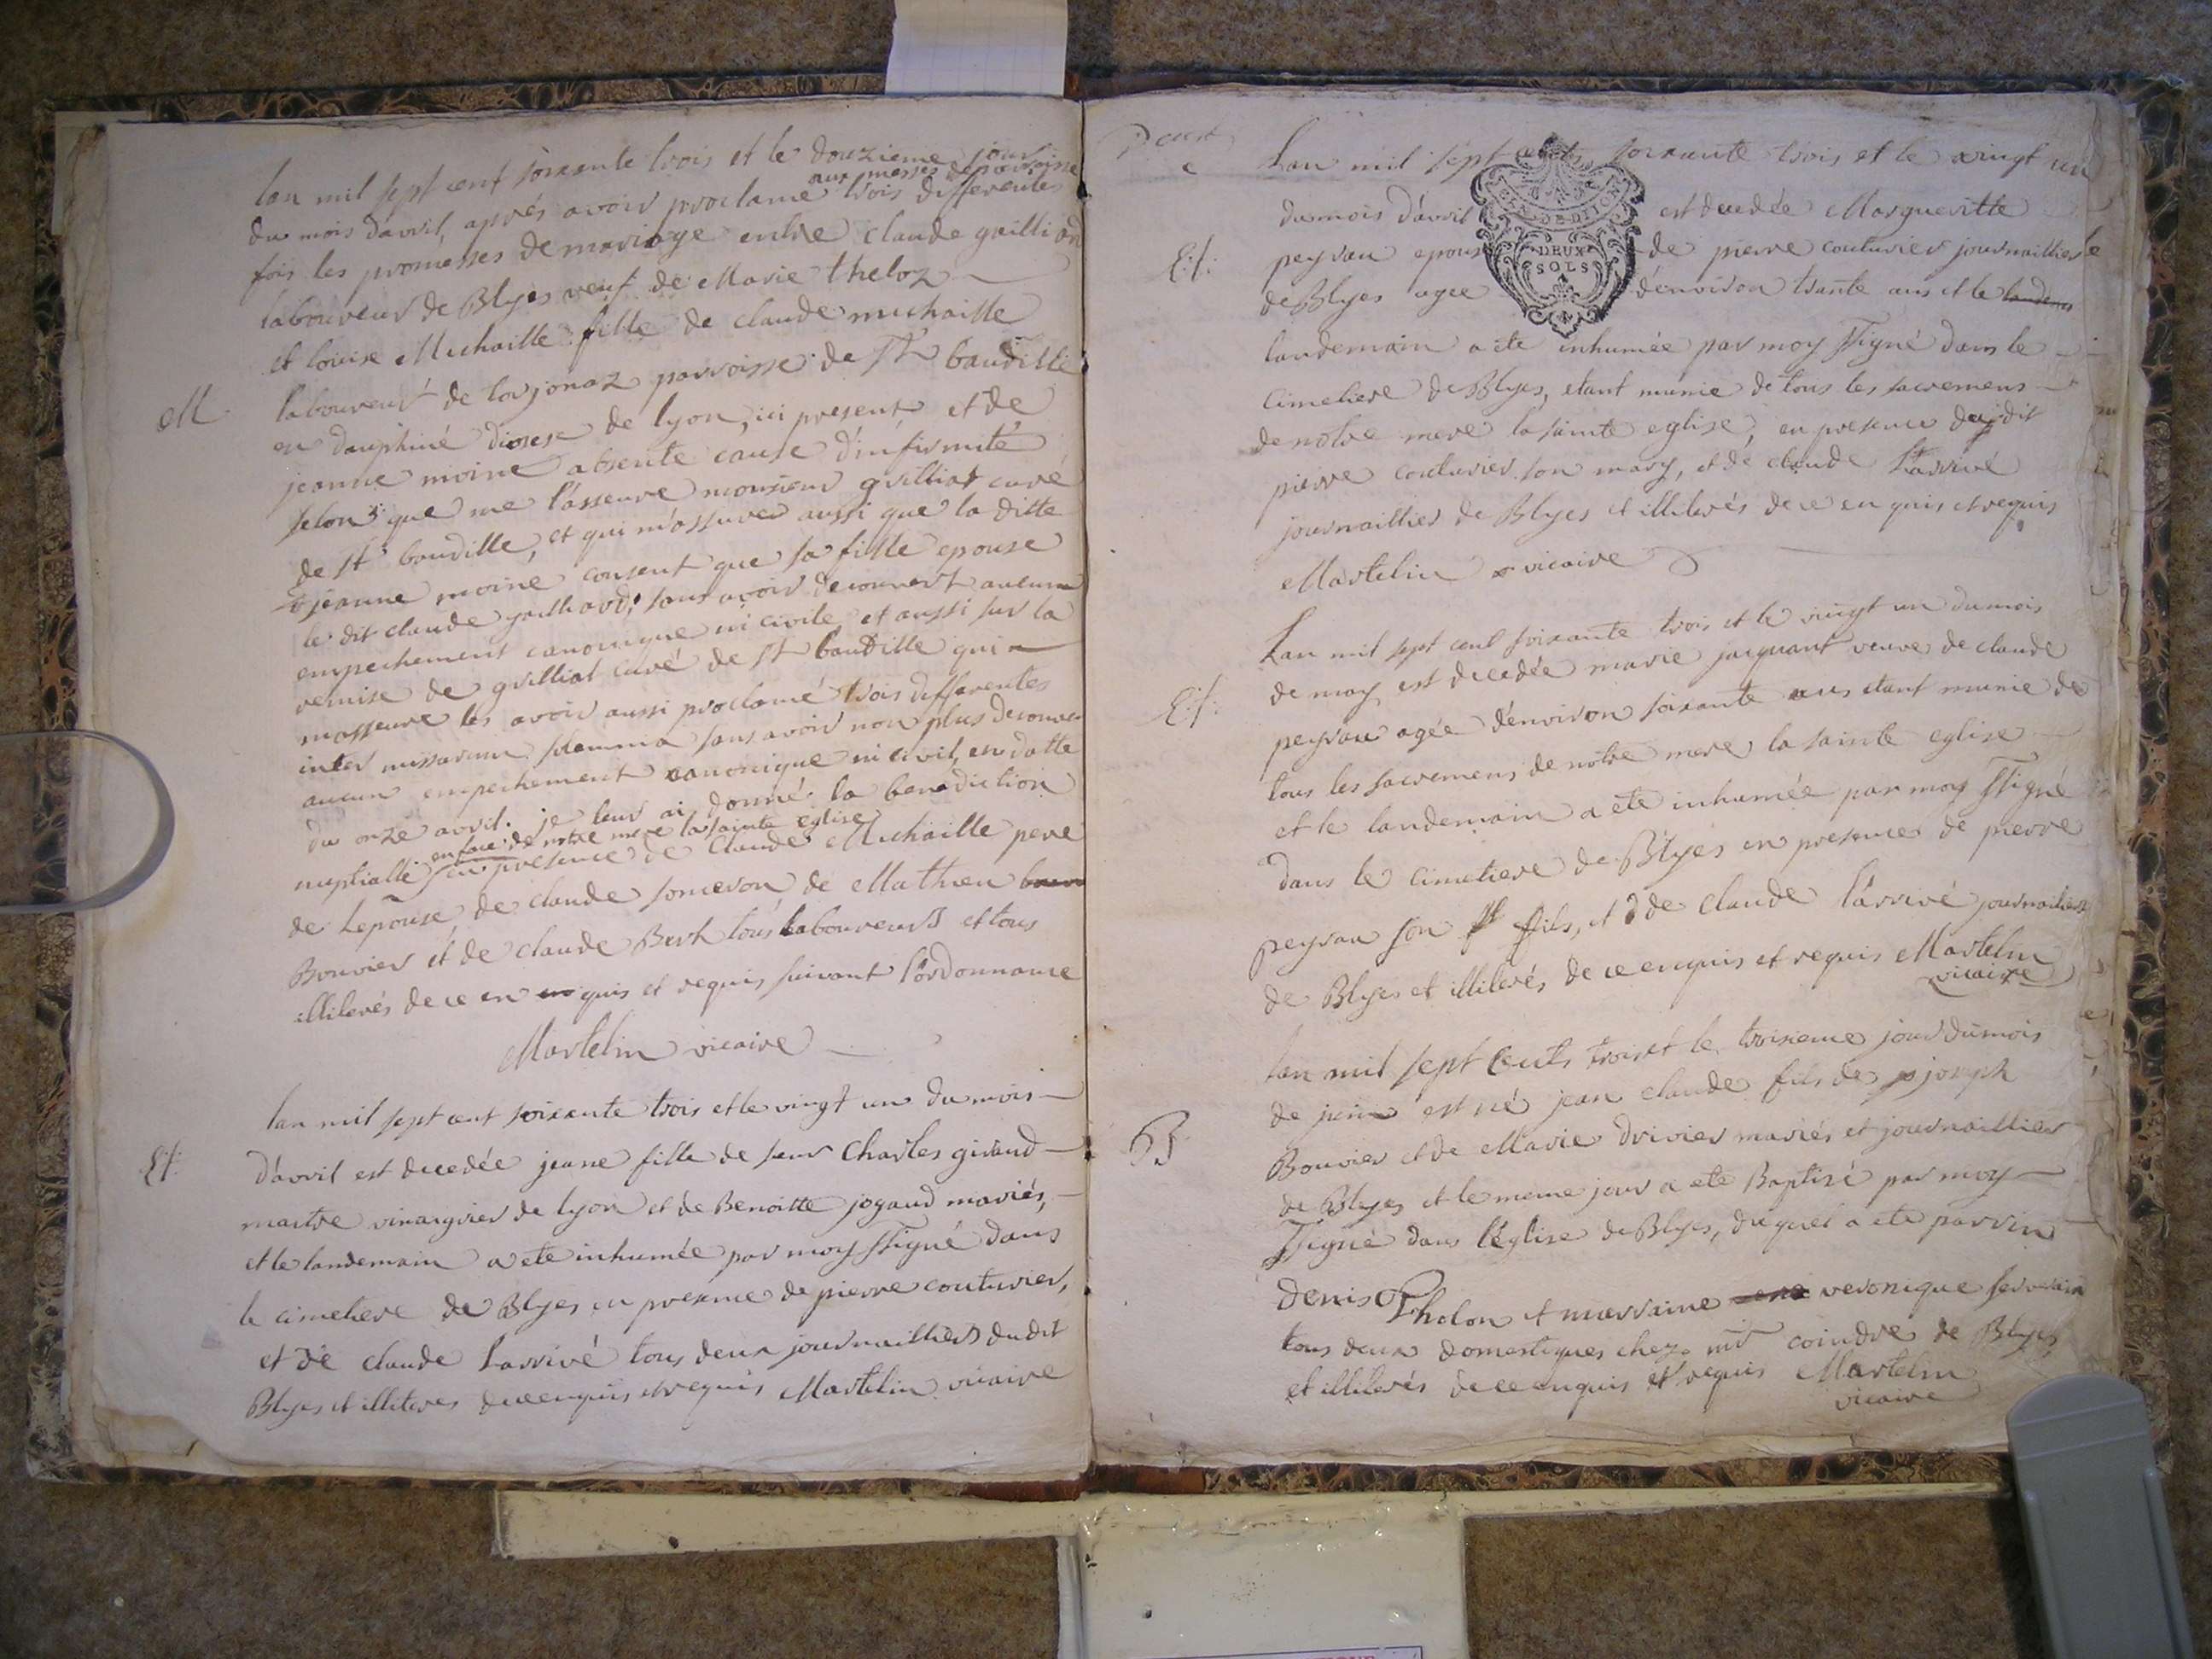 lan mil sept cent soixante trois et le douzieme jour
aux messes de parroisse
du mois davril, aprés avoir proclamé trois differentes
fois les promesses de mariage entre claude gailliard
laboureur de Blyes veuf de Marie theloz
et louise Michaille fille de claude michaille
M
laboureur de lorjonaz parroisse de St baudille
en dauphiné diocese de lyon, ici present et de
jeanne moine absente cause d'infirmité
selon que me l'asseure monsieur grilliat curé
de St baudille, et qui m'assure aussi que la ditte
jeanne moine consent que sa fille epouse
le dit claude gailliard, sans avoir decouvert aucun
empechement canonique ni civile, et aussi sur la
remise de grilliat curé de St baudille qui
masseure les avoir aussi proclamé trois differentes
inter missarum solemnia sans avoir non plus decouver
aucun empechement canonique ni civil, en datte
du onze avril. je leur ai donné la benediction
en face de notre mere la sainte eglise
nuptialle en presence de Claude Michaille pere
de Lepouse, de claude someron, de Mathieu
Bouvier et de claude Bert tous laboureurs et tous
illiterés de ce en quis et requis suivant l'ordonnance
Martelin vicaire
lan mil sept cent soixante trois et le vingt un du mois
Et:
d'avril est decedée jeane fille de sieur Charles giraud
maitre vinaigrier de lyon et de Benoitte jogaud mariés,
et le landemain a ete inhumée par moy ssigné dans
le cimetiere de Blyes en presence de pierre couturier,
et de claude larrivé tous deux journailliers dudit
Blyes et illiteres de ce enquis et requis Martelin vicaire
Lan mil sept cents soixante trois et le vingt un
du mois d'avril est decedée Margueritte
Et:
peysau epouse de pierre couturier journaillier
DEUX
SOLS
de Blyes agée d'environ trante ans et le
landemain a ete inhumée par moy ssigné dans le
cimetiere de Blyes, etant munie de tous les sacremens
de notre mere la sainte eglise, en presence du dit
pierre couturier son mary, et de claude Larrivé
journaillier de Blyes et illiterés de ce en quis et requis
Martelin vicaire
Lan mil sept cent soixante trois et le vingt un du mois
de may est decedée marie jacquant veuve de claude
Et:
peysau agée d'environ soixante ans etant munie de
tous les sacremens de notre mere la sainte eglise
et le landemain a ete inhumée par moy ssigné
dans le cimetiere de Blyes en presence de pierre
peysau son fils, et de claude l'arrivé journailiers
de Blyes et illiterés de ce enquis et requis Martelin
vicaire
lan mil sept Cents trois et le troisieme jour du mois
de juin est né jean claude fils de joseph
B
Bouvier et de Marie drivier mariés et journaillier
de Blyes et le meme jour a ete Baptisé par moy
ssigné dans l'eglise de Blyes, duquel a ete parrin
denis tholon et marraine veronique
tous deux domestiques chez mr coindre de Blyes
et illiterés de ce enquis et requis Martelin
vicaire